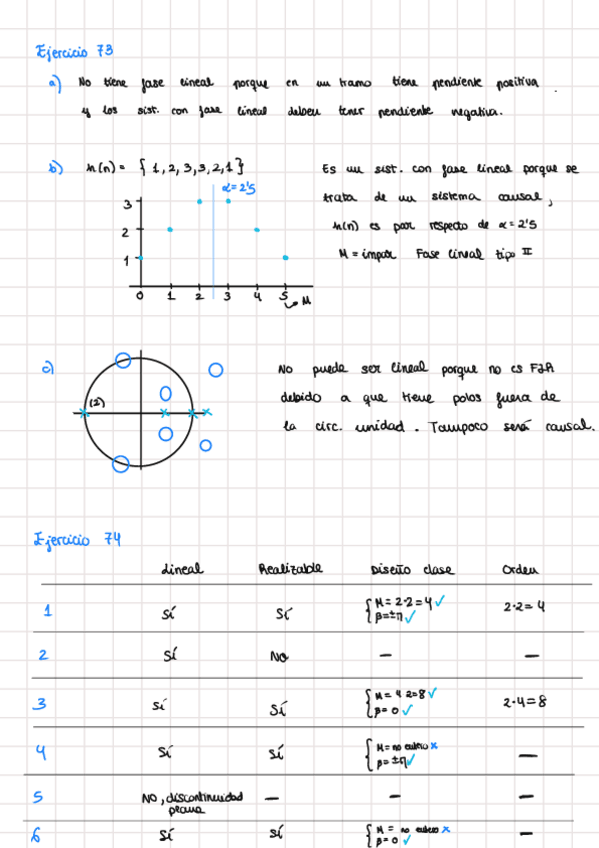 Ejercicio 73
a) No tiene fase lineal porque en un tramo tiene pendiente positiva.
y los sist. con fase lineal deben tener pendiente negativa.
b) h(n) = { 1, 2, 3, 3, 2, 1 }
α = 2'5
3
2
1
0 1 2 3 4 5 M
Es un sist. con fase lineal porque se
trata de un sistema causal,
h(n) es par respecto de α = 2'5
M = impar Fase lineal tipo II
c)
(2)
No puede ser lineal porque no es FIR
debido a que tiene polos fuera de
la circ. unidad. Tampoco será causal.
Ejercicio 74
Lineal Realizable Diseño clase Orden
1 SÍ SÍ { M = 2·2 = 4 ✓ 2·2 = 4
β = ±π ✓
2 SÍ NO — —
3 SÍ SÍ { M = 4·2 = 8 ✓ 2·4 = 8
β = 0 ✓
4 SÍ SÍ { M = no entero x —
β = ±π ✓
5 NO, discontinuidad — — —
6 SÍ SÍ { M = no entero x —
β = 0 ✓